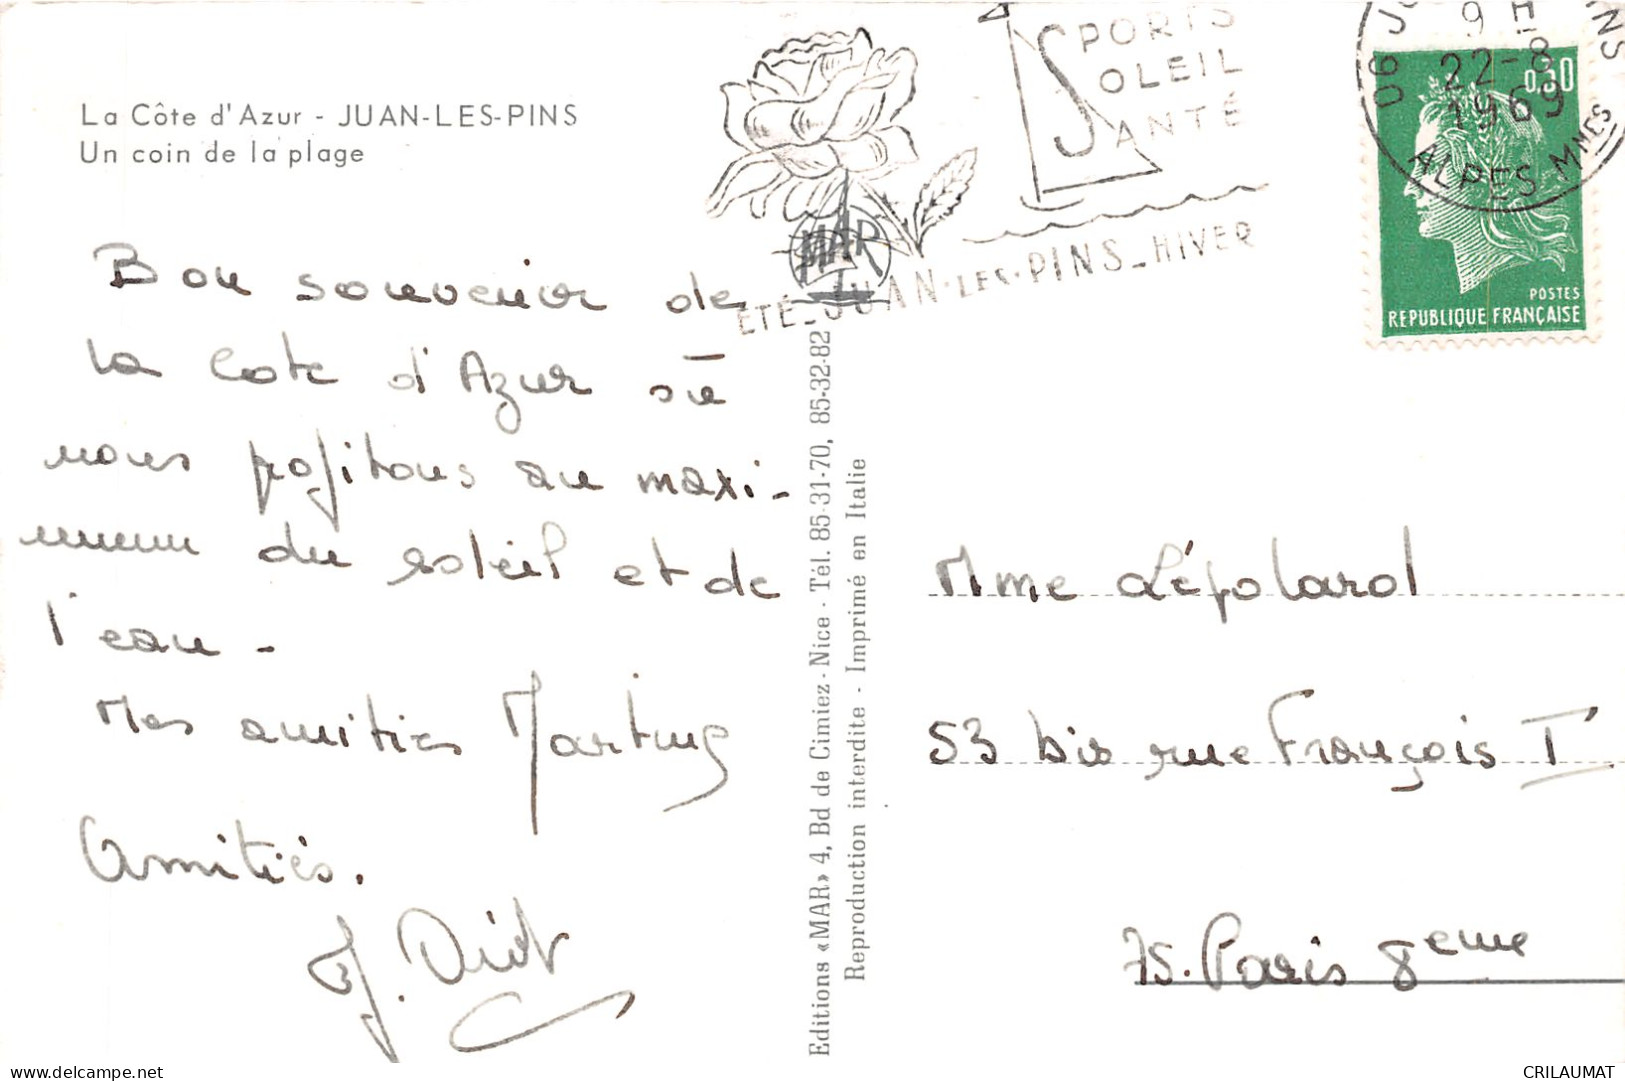 La Côte d'Azur - JUAN-LES-PINS
Un coin de la plage
SPORTS
SOLEIL
SANTÉ
ÉTÉ - JUAN-LES-PINS - HIVER
MAR
9 H
22-8
1969
06 J
INS
ALPES MMES
0,30
POSTES
REPUBLIQUE FRANÇAISE
Bon souvenir de
la cote d'Azur où
nous profitons au maxi-
mum du soleil et de
l'eau -
Mes amitiés Martine
Amitiés.
Editions «MAR» 4, Bd de Cimiez - Nice - Tél. 85-31-70, 85-32-82
Reproduction interdite - Imprimé en Italie
Mme Lépolard
53 bis rue François I
75. Paris 8eme
CRILAUMAT